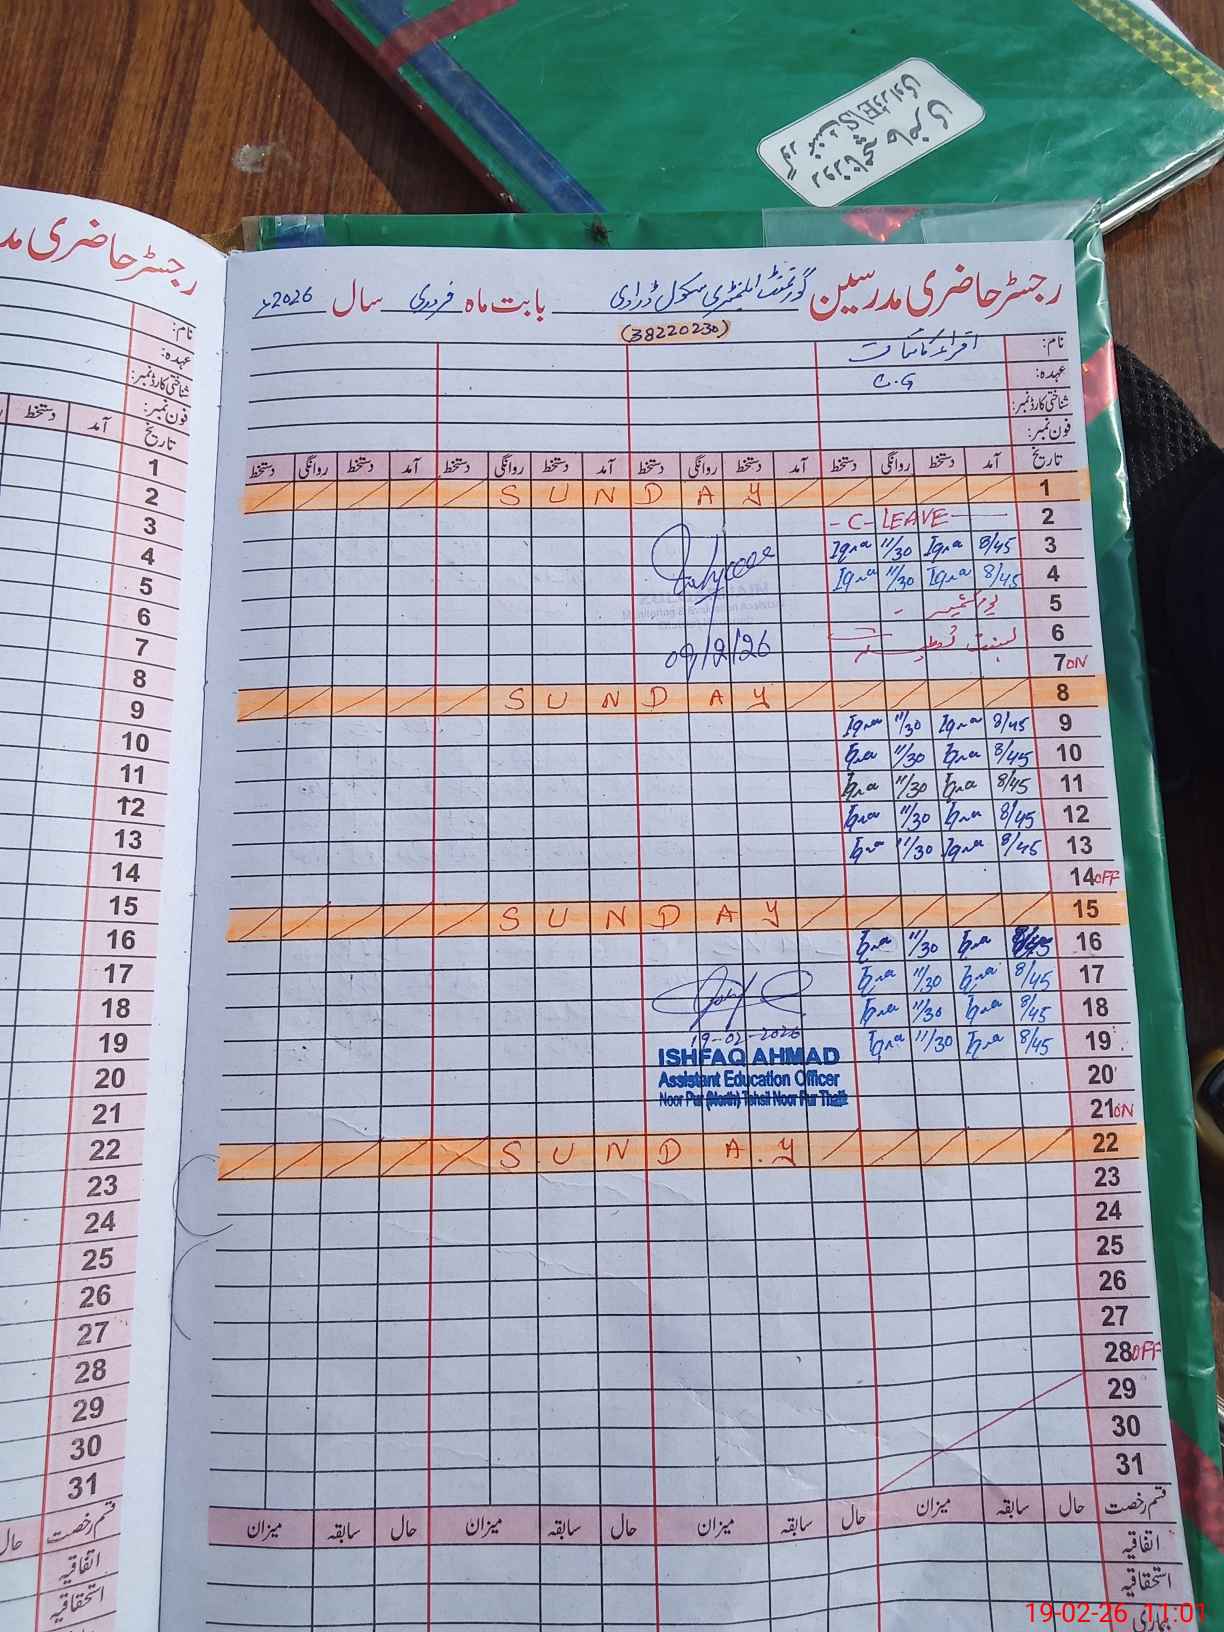 گورنمنٹ
E/S ڈراوی
روزنامچہ حاضری
رجسٹر حاضری مد
نام:
عہدہ:
شناختی کارڈ نمبر:
فون نمبر:
تاریخ آمد دستخط
1
2
3
4
5
6
7
8
9
10
11
12
13
14
15
16
17
18
19
20
21
22
23
24
25
26
27
28
29
30
31
قسم رخصت حال
اتفاقیہ
استحقاقیہ
رجسٹر حاضری مدرسین گورنمنٹ ایلیمنٹری سکول ڈراوی بابت ماہ فروری سال 2026ء
(38220230)
نام: اقراء کائنات
عہدہ: C.G
شناختی کارڈ نمبر:
فون نمبر:
تاریخ آمد دستخط روانگی دستخط آمد دستخط روانگی دستخط آمد دستخط روانگی دستخط آمد دستخط روانگی دستخط
1 SUNDAY
2 - C - LEAVE
3 8/45 Iqra 11/30 Iqra
4 8/45 Iqra 11/30 Iqra
5 یوم کشمیر
6
7 ON
09/2/26
8 SUNDAY
9 8/45 Iqra 11/30 Iqra
10 8/45 Iqra 11/30 Iqra
11 8/45 Iqra 11/30 Iqra
12 8/45 Iqra 11/30 Iqra
13 8/45 Iqra 11/30 Iqra
14 OFF
15 SUNDAY
16 8/45 Iqra 11/30 Iqra
17 8/45 Iqra 11/30 Iqra
18 8/45 Iqra 11/30 Iqra
19 8/45 Iqra 11/30 Iqra
19-02-2026
ISHFAQ AHMAD
Assistant Education Officer
Noor Pur (North) Tehsil Noor Pur Thall
20
21 ON
22 SUNDAY
23
24
25
26
27
28 OFF
29
30
31
قسم رخصت حال سابقہ میزان حال سابقہ میزان حال سابقہ میزان حال سابقہ میزان
اتفاقیہ
استحقاقیہ
بیماری
19-02-26 11:01